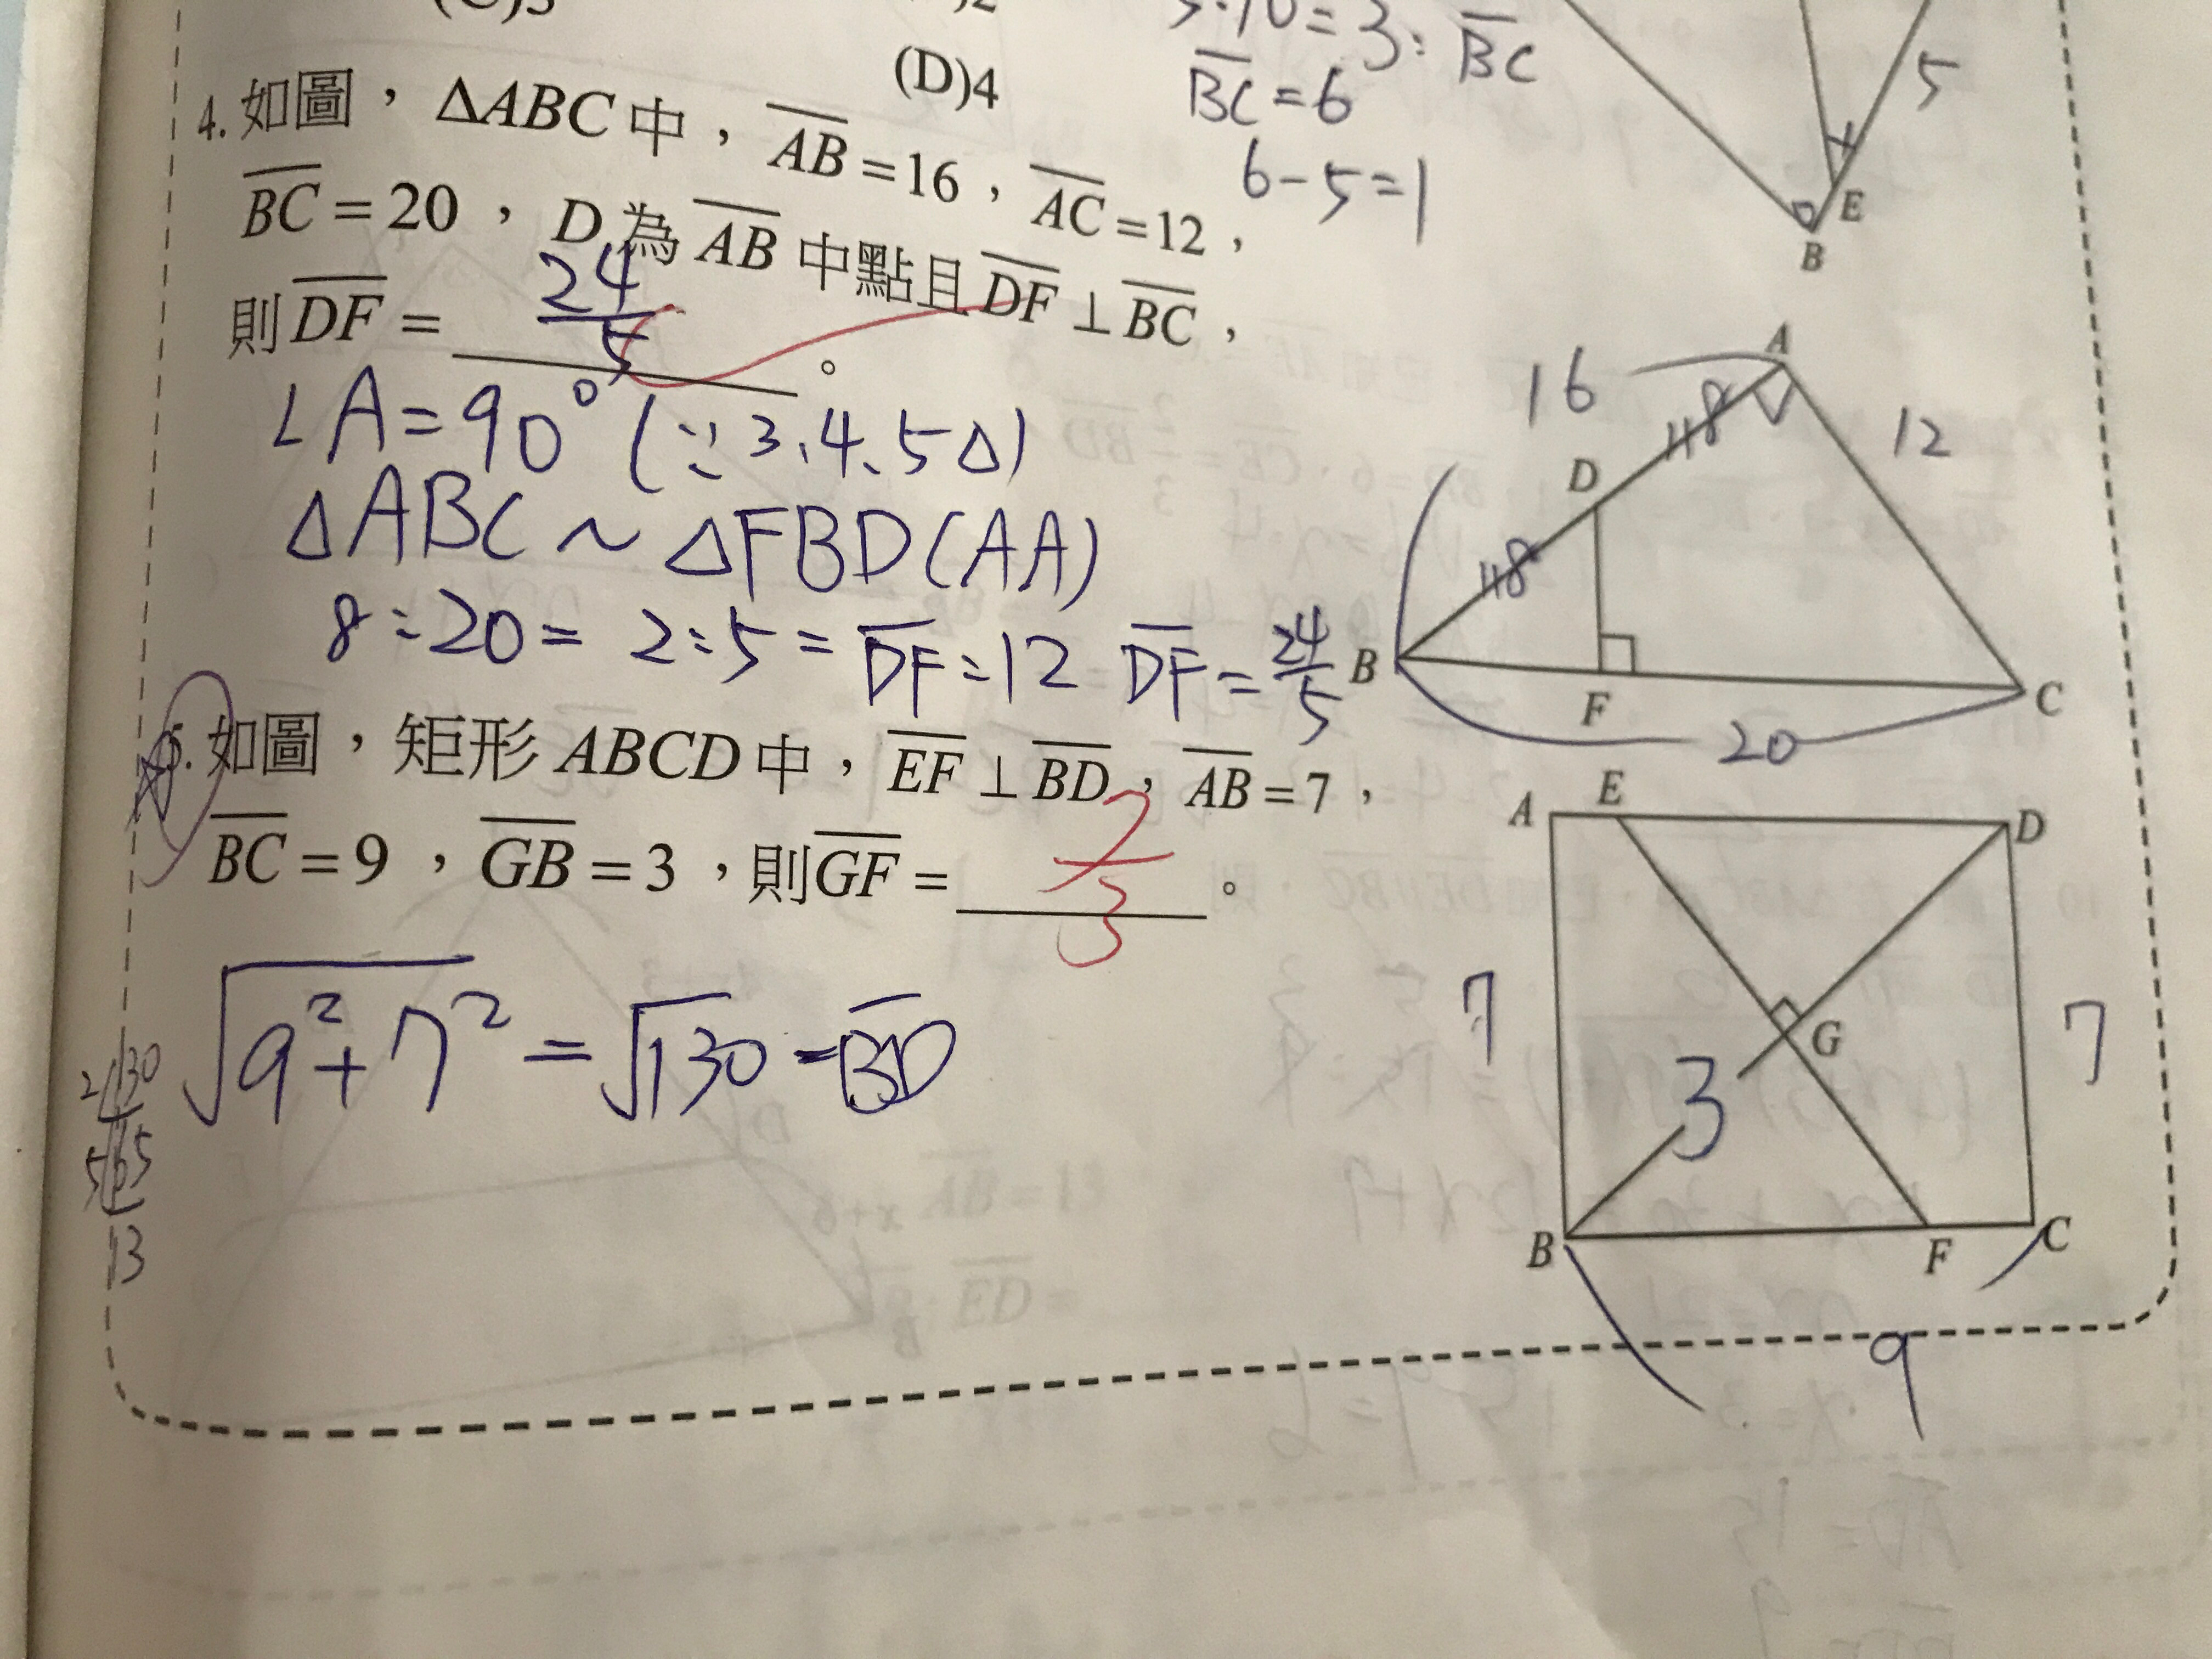 (D)4
BC = 6
6-5=1
4. 如圖，ΔABC 中，AB = 16，AC = 12，
BC = 20，D 為 AB 中點且 DF ⊥ BC，
則 DF = 24/5。
∠A = 90° (∵3、4、5Δ)
ΔABC ~ ΔFBD (AA)
8:20 = 2:5 = DF:12 DF = 24/5
5
E
B
A
16
8
12
D
8
B
F
C
20
5. 如圖，矩形 ABCD 中，EF ⊥ BD，AB = 7，
BC = 9，GB = 3，則 GF = 7/3。
√9²+7² = √130 = BD
2 130
5 65
13
A E D
7
G
3
7
B F C
9